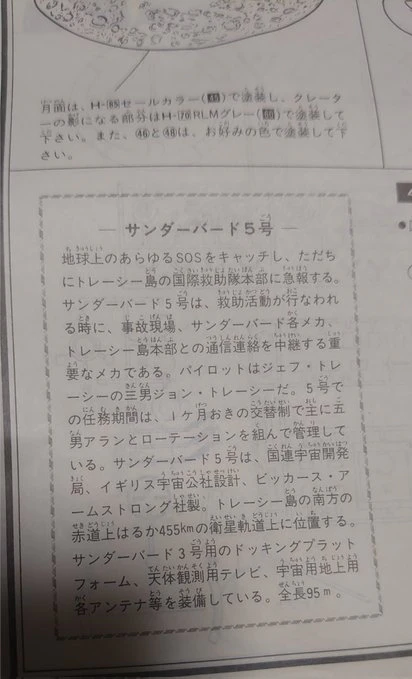 月面は、H-85セールカラー(45)で塗装し、クレータ
ーの影になる部分はH-70RLMグレー(60)で塗装して
下さい。また、46と48は、お好みの色で塗装して下
さい。
サンダーバード5号
地球上のあらゆるSOSをキャッチし、ただち
にトレーシー島の国際救助隊本部に急報する。
サンダーバード5号は、救助活動が行なわれ
る時に、事故現場、サンダーバード各メカ、
トレーシー島本部との通信連絡を中継する重
要なメカである。パイロットはジェフ・トレ
ーシーの三男ジョン・トレーシーだ。5号で
の任務期間は、1ケ月おきの交替制で主に五
男アランとローテーションを組んで管理して
いる。サンダーバード5号は、国連宇宙開発
局、イギリス宇宙公社設計、ビッカース・ア
ームストロング社製。トレーシー島の南方の
赤道上はるか455kmの衛星軌道上に位置する。
サンダーバード3号用のドッキングプラット
フォーム、天体観測用テレビ、宇宙用地上用
各アンテナ等を装備している。全長95m。